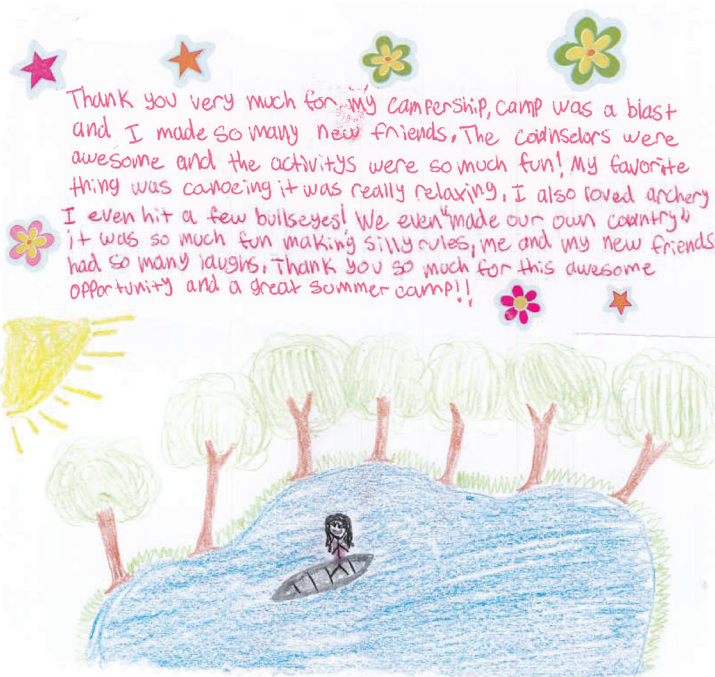 Thank you very much for my campership, camp was a blast
and I made so many new friends. The counselors were
awesome and the activitys were so much fun! My favorite
thing was canoeing it was really relaxing. I also loved archery
I even hit a few bullseyes! We even "made our own country"
it was so much fun making silly rules, me and my new friends
had so many laughs. Thank you so much for this awesome
opportunity and a great summer camp!!